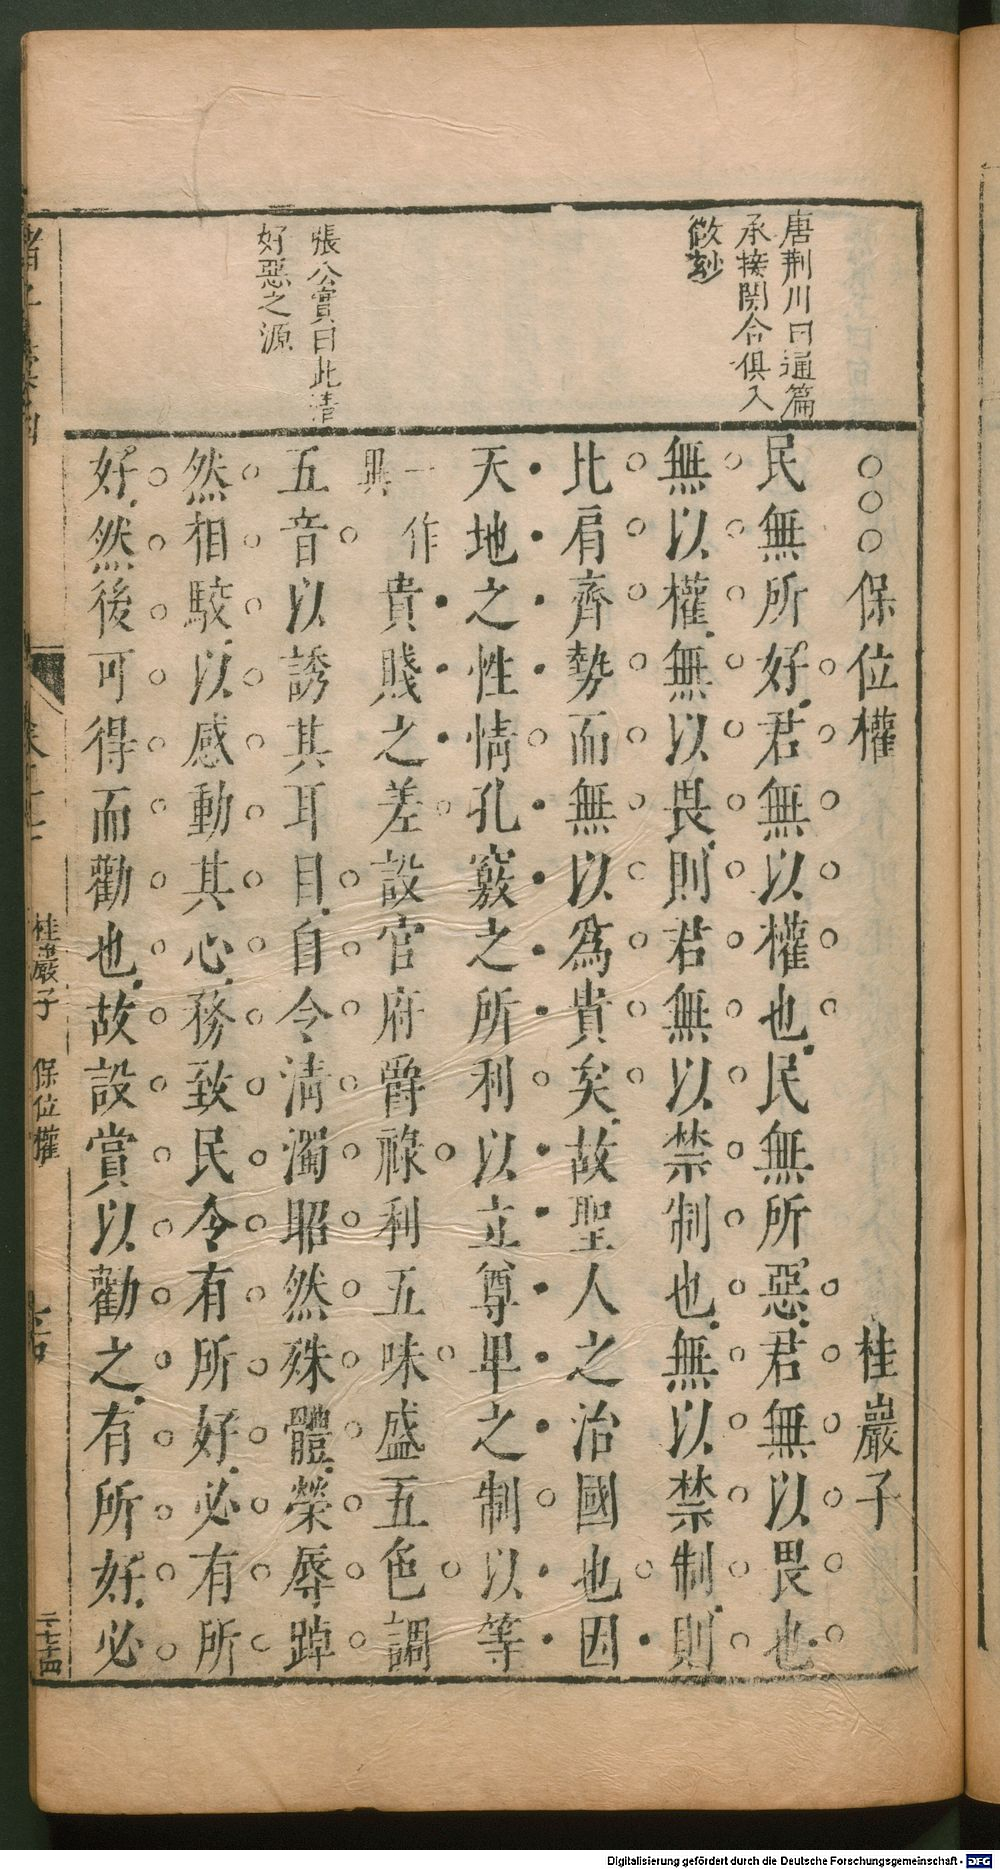 唐荊川曰通篇
承接開合俱入
微玅
張公實曰此清
好惡之源
○○○保位權 桂巖子
民無所好君無以權也民無所惡君無以畏也
無以權無以畏則君無以禁制也無以禁制則
比肩齊勢而無以爲貴矣故聖人之治國也因
天地之性情孔竅之所利以立尊卑之制以等
一作異貴賤之差設官府爵祿利五味盛五色調
五音以誘其耳目自令清濁昭然殊體榮辱踔
然相駮以感動其心務致民令有所好必有所
好然後可得而勸也故設賞以勸之有所好必
桂巖子 保位權
Digitalisierung gefördert durch die Deutsche Forschungsgemeinschaft - DFG